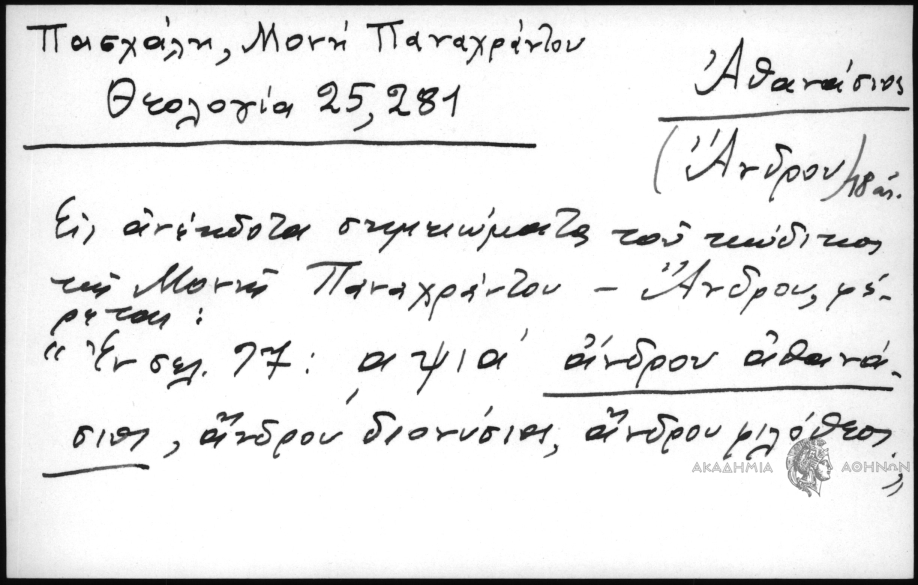 Πασχάλη, Μονή Παναχράντου
Θεολογία 25, 281
Ἀθανάσιος
(Ἄνδρου) 18 αἰ.
Εἰς ἀνέκδοτα σημειώματα τοῦ κώδικος
τῆς Μονῆς Παναχράντου - Ἄνδρου, φέ-
ρεται:
"Ἐν σελ. 77: αψια' ἄνδρου ἀθανά-
σιος, ἄνδρου διονύσιος, ἄνδρου φιλόθεος"
ΑΚΑΔΗΜΙΑ ΑΘΗΝΩΝ